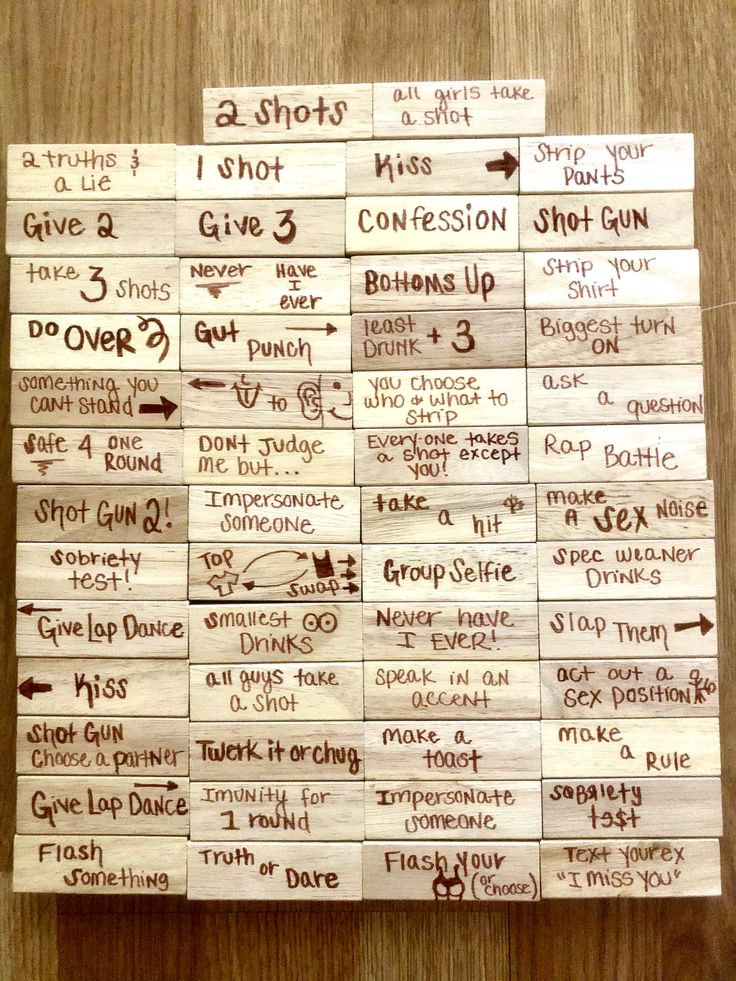 2 Shots
all girls take
a shot
2 truths &
a Lie
1 Shot
Kiss
Strip your
PANTS
Give 2
Give 3
CONfession
Shot GUN
take 3 shots
Never Have
I
ever
BOTTOMS UP
Strip your
Shirt
DO OVER
Gut
PUNCH
least
DRUNK + 3
Biggest turn
ON
something you
CANT STAND
to
you choose
who & what to
strip
ask
a
question
Safe 4 ONE
ROUND
DONT Judge
me but...
Every-one takes
a shot except
you!
Rap Battle
Shot GUN 2!
Impersonate
someone
take
a
hit
make
A SEX NOISE
sobriety
test!
TOP
swap
Group Selfie
Spec weaner
DRINKS
Give Lap Dance
smallest
DRINKS
Never have
I EVER!
Slap Them
Kiss
all guys take
a shot
Speak in an
accent
act out a
sex position
Shot GUN
Choose a partner
Twerk it or chug
make a
toast
make
a
RULE
Give Lap Dance
Imunity for
1 round
Impersonate
someone
SOBRIETY
t3$t
Flash
something
Truth
or
Dare
Flash your
(or
choose)
Text your ex
"I miss you"